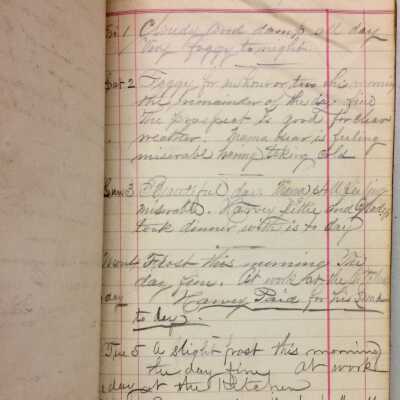 Fri 1 Cloudy and damp all day
Very foggy tonight
Sat 2 Foggy for an hour or two this morning
the remainder of the day fine
the prospect is good for clear
weather. Mama is feeling
miserable being taking cold
Sun 3 Beautiful day. Mama still feeling
miserable. Harvey Lettie and Gladys
took dinner with us to day
4 Frost this morning The
day fine. At work at the Kitchen
day Harvey Paid for his
to day.
Tue 5 A slight frost this morning
the day fine at work
day at the Kitchen